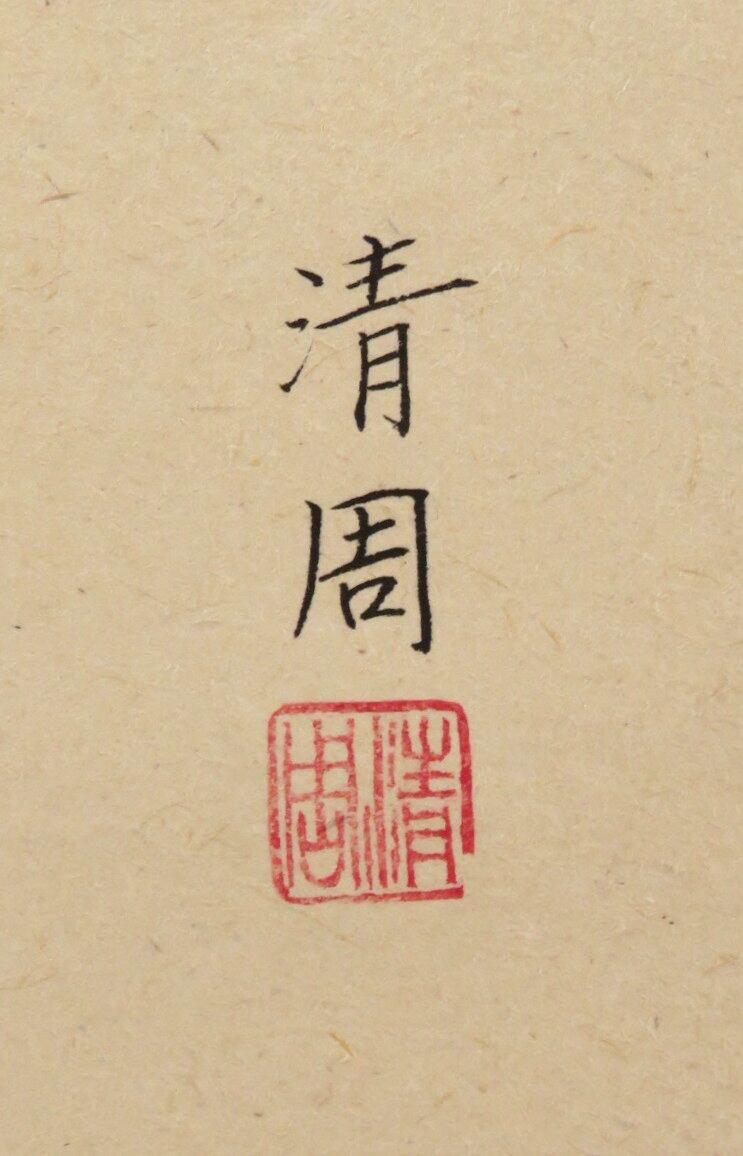 清周
清周